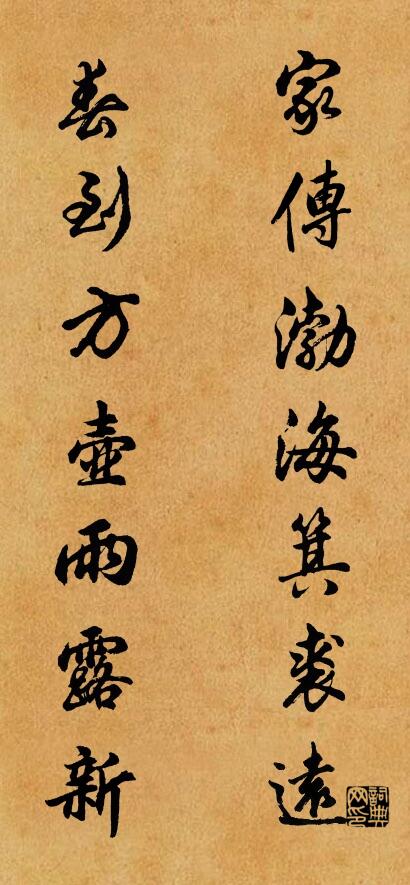 家傳渤海箕裘遠
春到方壺雨露新
詞典网印